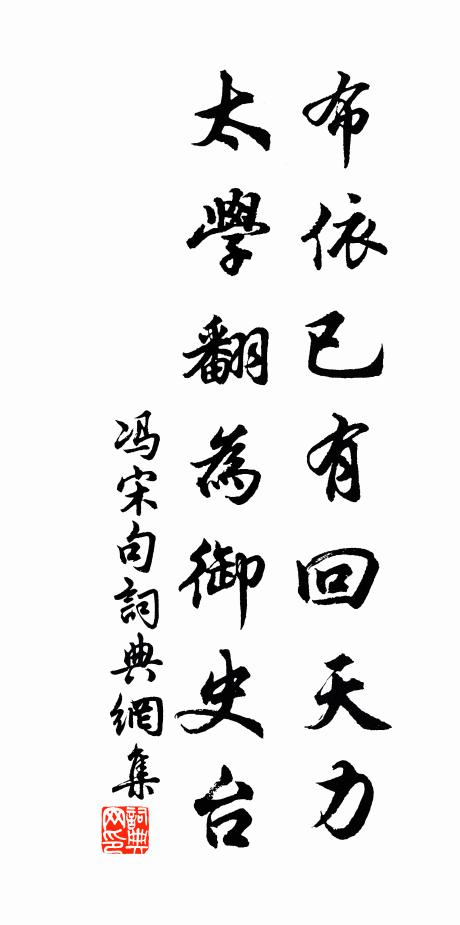 布依已有回天力
太學翻為御史台
冯宋句詞典網集
詞典网印